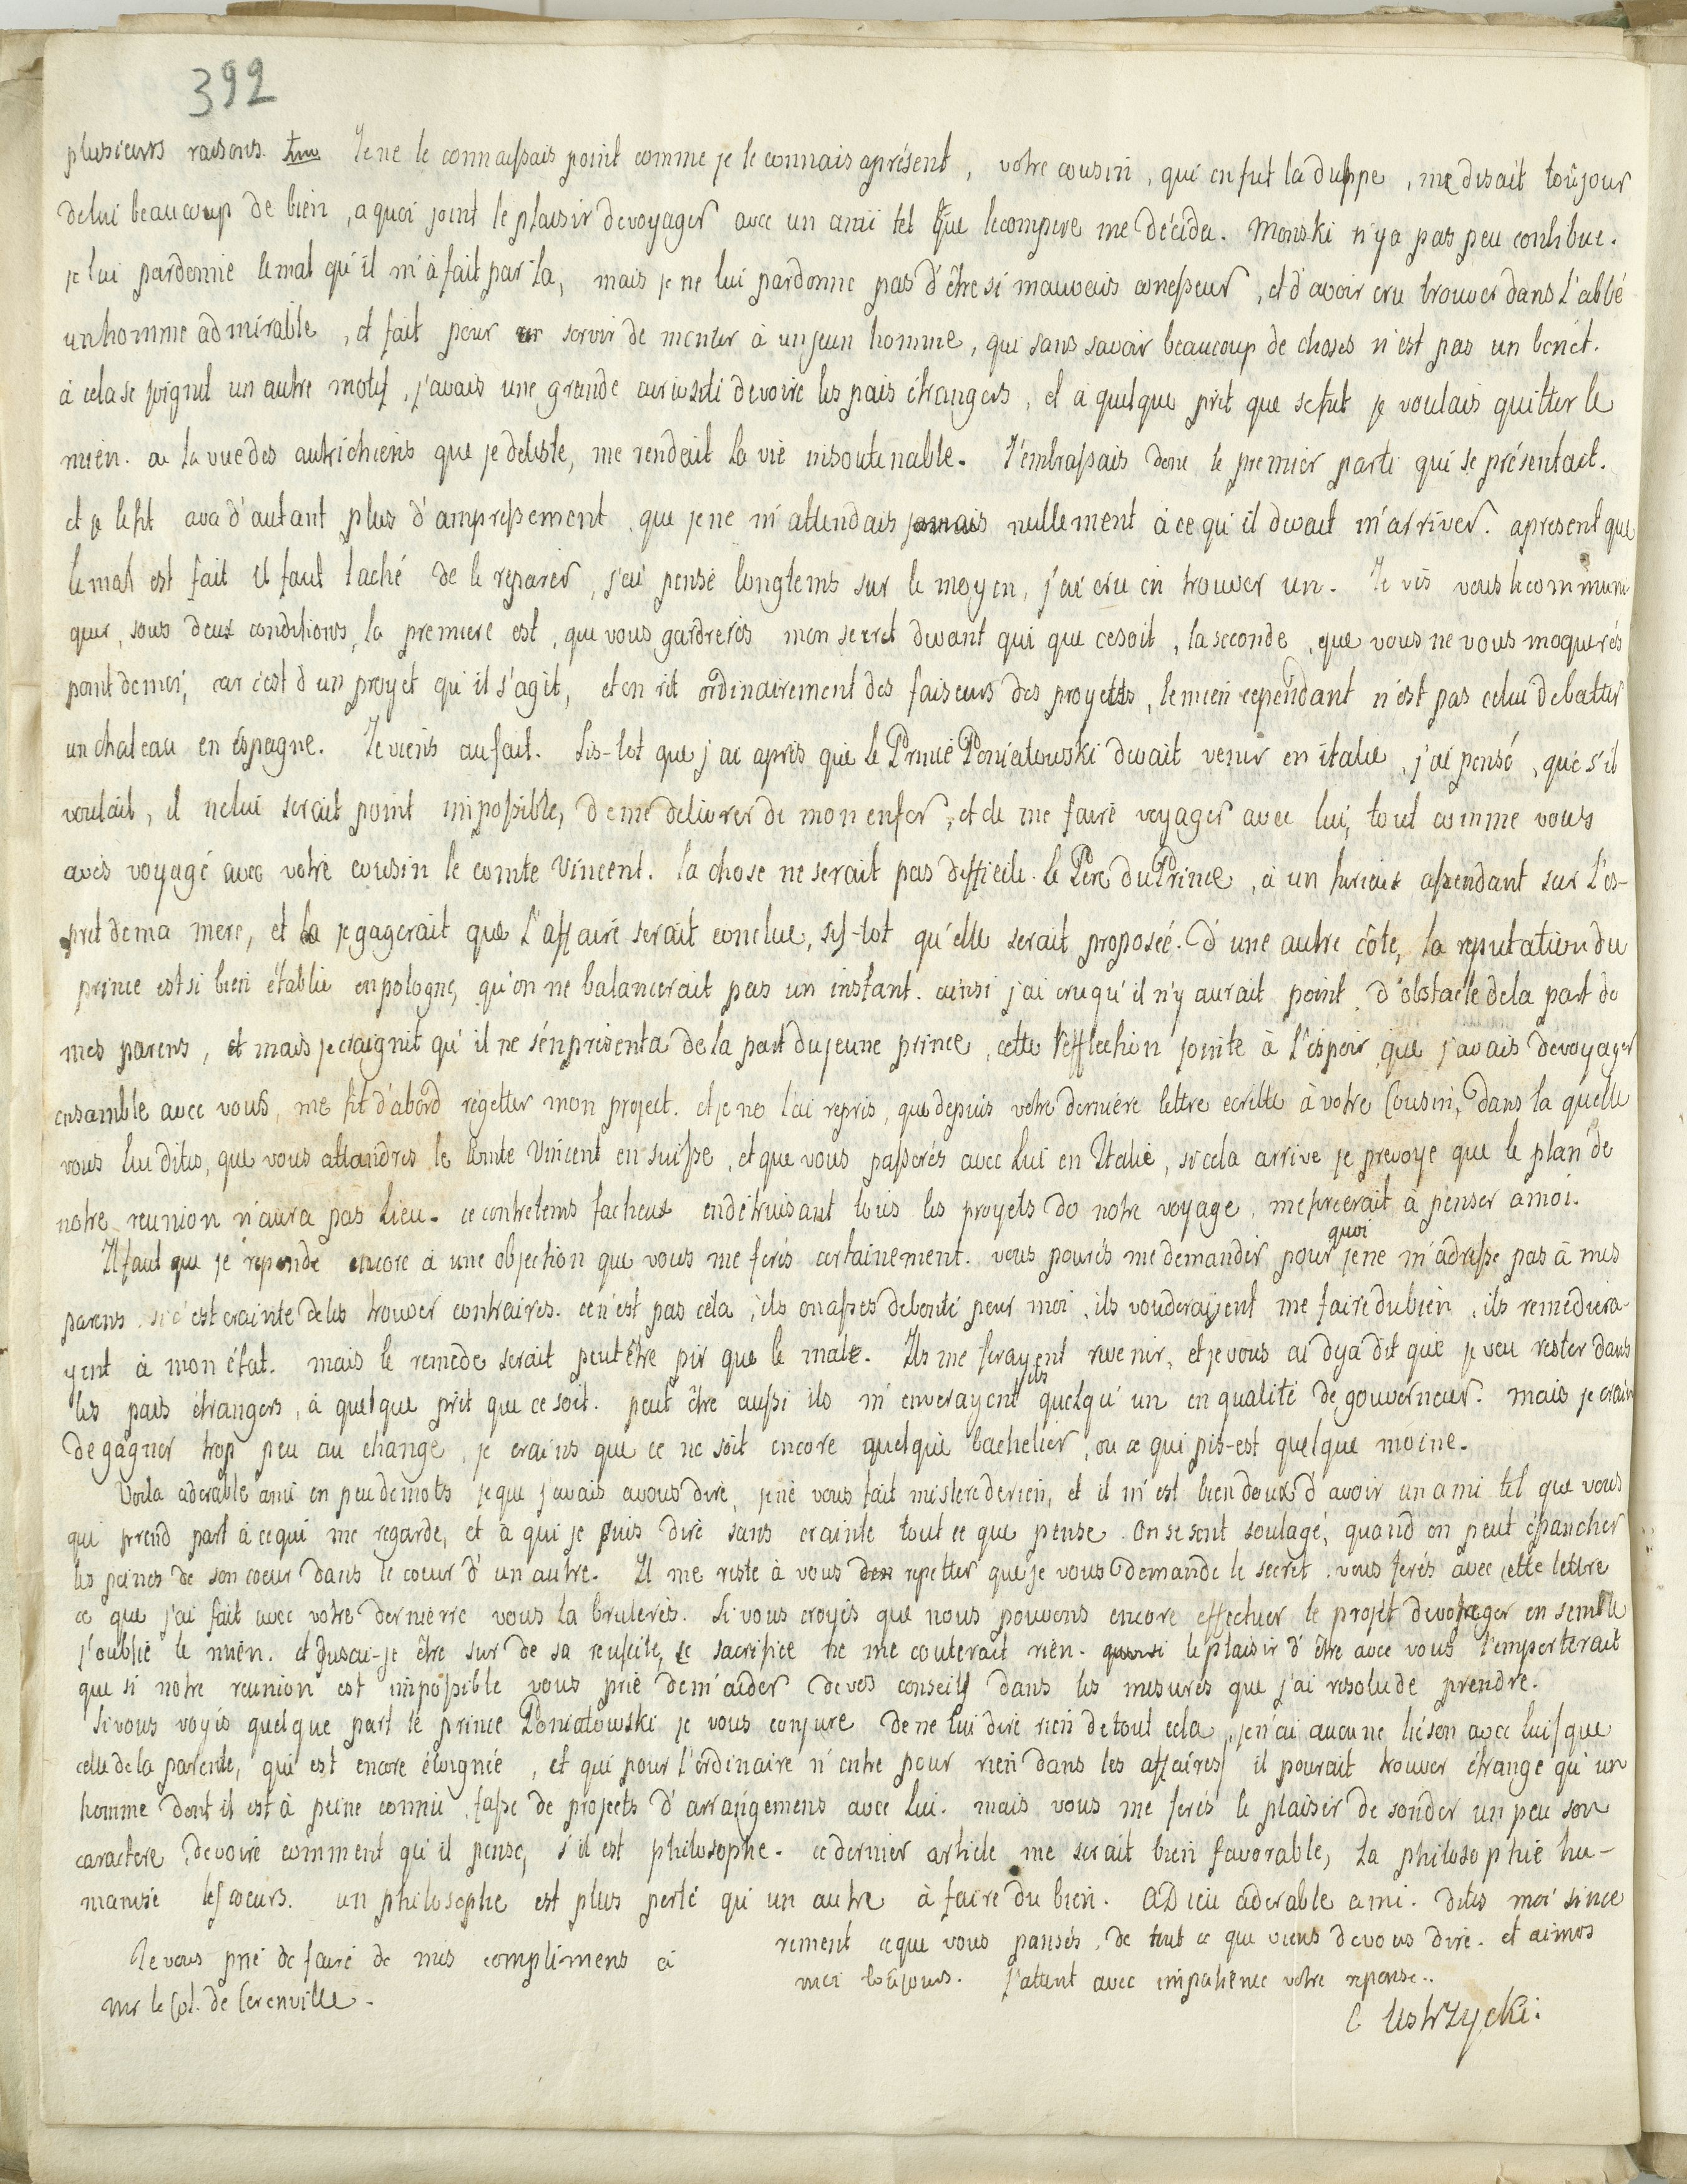 392
plusieurs raisons. Je ne le connaissais point comme je le connais aprésent, votre cousin, qui en fut la duppe, me disait toûjour
de lui beaucoup de bien, a quoi joint le plaisir de voyager avec un ami tel que le compere me décida. Monski n'y a pas peu contribue.
je lui pardonne le mal qu'il m'à fait par la, mais je ne lui pardonne pas d'être si mauvais conesseur, et d'avoir cru trouver dans l'abbé
un homme admirable, et fait pour servir de mentor à un jeun homme, qui sans savoir beaucoup de choses n'est pas un benét.
à cela se joignit un autre motif, j'avais une grande curiosité de voire les pais étrangers, et a quelque prit que se fut je voulais quitter le
mien. la vue des autrichiens que je deteste, me rendait la vie insoutenable. J'embrassais donc le premier parti qui se présentait.
et je le fit avec d'autant plus d'ampressement que je ne m'attendais jamais nullement à ce qu'il devait m'arriver. apresent que
le mal est fait il faut taché de le reparer, j'ai pensé longtems sur le moyen, j'ai cru en trouver un. Je vis vous le communi
quer, sous deux conditions, la premiere est, que vous gardrerés mon secret devant qui que ce soit, la seconde, que vous ne vous moquerés
point de moi, car c'est d'un proyet qu'il s'agit, et on rit ordinairement des faiseurs des proyets, le mien cependant n'est pas celui de batir
un chateau en éspagne. Je viens au fait. Sis-tot que j'ai apris que le Prince Poniatowski devait venir en italie, j'ai pensé, que s'il
voulait, il ne lui serait point impossible, de me delivrer de mon enfer, et de me faire voyager avec lui, tout comme vous
avés voyagé avec votre cousin le comte Vincent. la chose ne serait pas difficile. le Pere du Prince, à un furieux assendant sur l'es-
prit de ma mere, et je gagerait que l'affaire serait conclue, sis-tot qu'elle serait proposée. d'une autre côte, la reputation du
prince est si bien établie en pologne, qu'on ne balancerait pas un instant. ainsi j'ai cru qu'il n'y aurait point d'obstacle de la part de
mes parens, et mais je craignit qu'il ne s'en prisenta de la part du jeune prince, cette réfflection jointe à l'éspoir que j'avais de voyager
ensamble avec vous, me fit d'abord régetter mon project. et je ne l'ai repris, que depuis votre derniére lettre ecritte à votre Cousin, dans la quelle
vous lui dites, que vous attandrés le comte Vincent en suisse, et que vous passerés avec lui en Italie, si cela arrive je prevoye que le plan de
notre reunion n'aura pas lieu. ce contretems facheux en détruisant tous les proyets de notre voyage, me forcerait à penser à moi.
Il faut que je reponde encore à une objection que vous me ferés certainement. vous pourés me demander pour quoi je ne m'adresse pas à mes
parens, si c'est crainte de les trouver contraires. ce n'est pas céla, ils on asses de bonté pour moi, ils vouderayent me faire du bien, ils remediera-
yent à mon état. mais le remede serait peut être pir que le male. Ils me ferayent revenir, et je vous ai deja dit que je veu rester dans
les pais étrangers, à quelque prit que ce soit. peut être aussi ils m'enverayent quelqu'un en qualité de gouverneur. mais je crain
de gagner trop peu au change, je crains que ce ne soit encore quelque bachelier, ou ce qui pis-est quelque moine.
Voila adorable ami en peu de mots ce que j'avais a vous dire, je ne vous fait mistere de rien, et il m'est bien doux d'avoir un ami tel que vous
qui prend part à ce qui me regarde, et à qui je puis dire sans crainte tout ce que pense. on se sent soulagé, quand on peut épancher
les peines de son coeur dans le coeur d'un autre. Il me reste à vous repetter que je vous demande le secret. vous ferés avec cette lettre
ce que j'ai fait avec votre dernierre vous la brulerés. Si vous croyés que nous pouvons encore effectuer le projet de voyager en semble
j'oublie le mien. et dusai-je être sur de sa reussite, ce sacrifice ne me couterait rien. le plaisir d'être avec vous l'emporterait
que si notre reunion est impossible vous prie de m'aider de vos conseils dans les mesures que j'ai resolu de prendre.
Si vous voyés quelque part le prince Poniatowski je vous conjure de ne lui dire rien de tout cela, je n'ai aucune liéson avec lui que
celle de la parente, qui est encore éloignée, et qui pour l'ordinaire n'entre pour rien dans les affaires il pourait trouver étrange qu'un
homme dont il est à peine connu, fasse de projects d'arrangemens avec lui. mais vous me ferés le plaisir de sonder un peu son
caractere, de voire comment qu'il pense, s'il est philosophe. ce dernier article me serait bien favorable, la philosophie hu-
manise les coeurs. un philosophe est plus porté qu'un autre à faire du bien. ADieu adorable ami. dites moi since
rement ce que vous pansés, de tout ce que viens de vous dire. et aimes
moi toûjours. J'attent avec impatience votre reponse..
C Ustrzycki.
Je vous prie de faire de mes complimens à
mr le Col. de Cerenville.